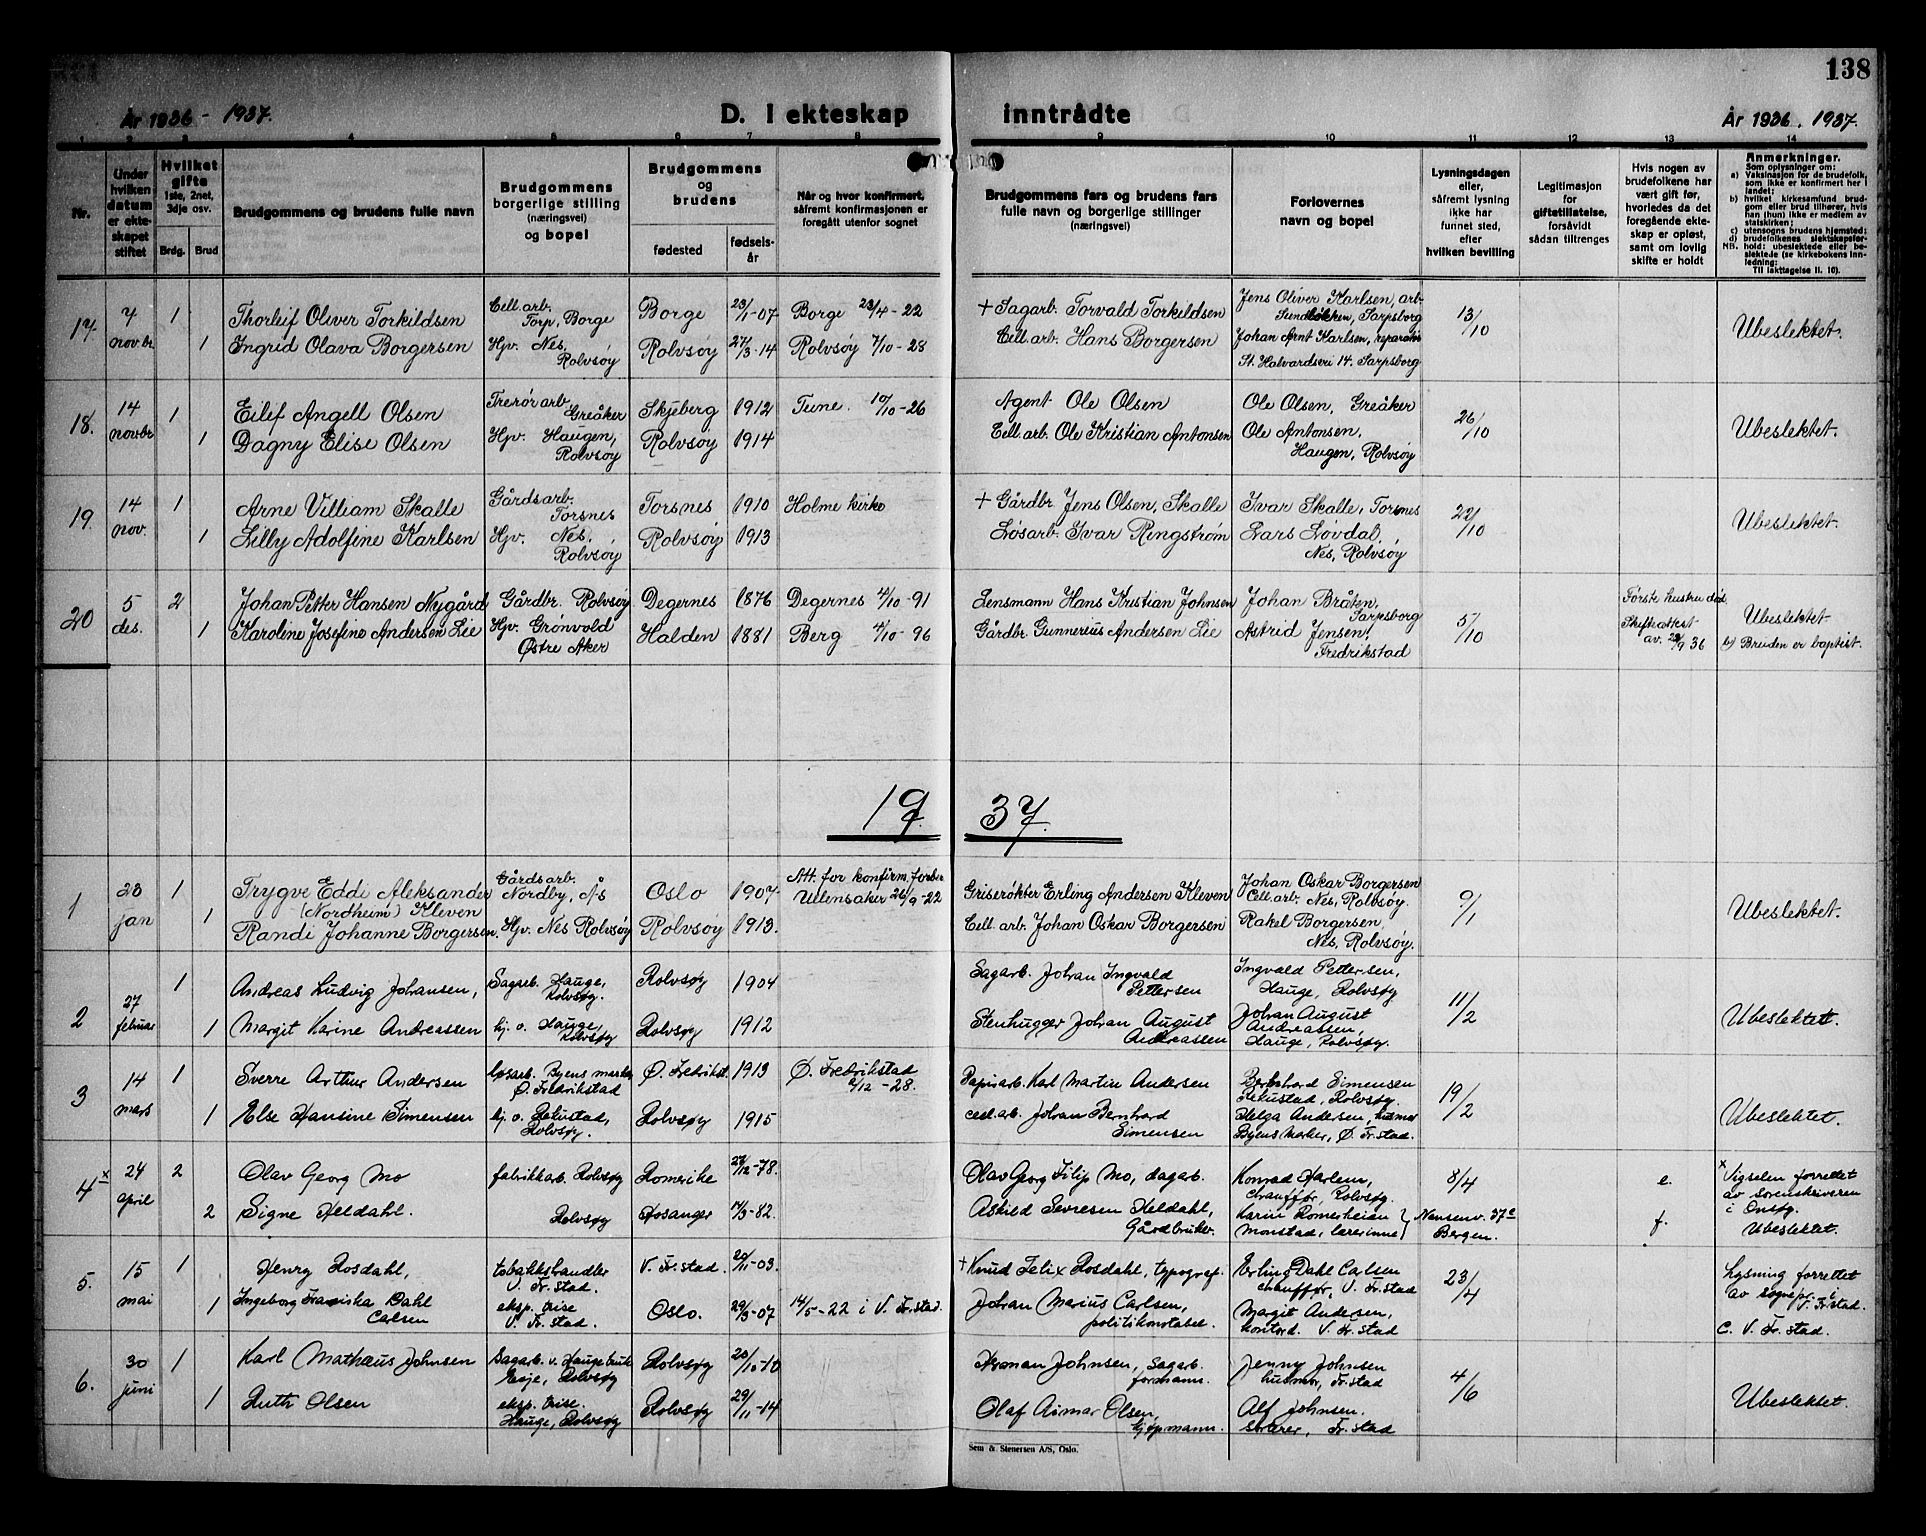 138
År 1936 - 1937.
D. I ekteskap inntrådte
År 1936. 1937.
1 2 3 4 5 6 7 8 9 10 11 12 13 14
Nr.
Under hvilken datum er ekteskapet stiftet
Hvilket gifte 1ste, 2net, 3dje osv.
Brdg. Brud
Brudgommens og brudens fulle navn
Brudgommens borgerlige stilling (næringsvei) og bopel
Brudgommens og brudens
fødested
fødselsår
Når og hvor konfirmert, såfremt konfirmasjonen er foregått utenfor sognet
Brudgommens fars og brudens fars fulle navn og borgerlige stillinger (næringsvei)
Forlovernes navn og bopel
Lysningsdagen eller, såfremt lysning ikke har funnet sted, efter hvilken bevilling
Legitimasjon for giftetillatelse, forsåvidt sådan tiltrenges
Hvis nogen av brudefolkene har vært gift før, hvorledes da det foregående ekteskap er opløst, samt om lovlig skifte er holdt
Anmerkninger.
Som oplysninger om:
a) Vaksinasjon for de brudefolk, som ikke er konfirmert her i landet;
b) hvilket kirkesamfund brudgom eller brud tilhører, hvis han (hun) ikke er medlem av statskirken;
c) utensogns brudens hjemsted;
d) brudefolkenes slektskapsforhold: ubeslektede eller beslektede (se kirkebokens innledning:
NB. Til iakttagelse II. 10).
17 7 novbr 1 Thorleif Oliver Torkildsen Cell. arb. Torp, Borge Borge 23/1-07 Borge 23/4-22 + Sagarb. Torvald Torkildsen Jens Oliver Karlsen, arb. Sundløkken, Sarpsborg 13/10 Ubeslektet.
1 Ingrid Olava Borgersen Hjv. Nes, Rolvsøy Rolvsøy 27/3-14 Rolvsøy 7/10-28 Cell. arb. Hans Borgersen Johan Arnt Karlsen, reparatør St. Halvardsvei 14. Sarpsborg
18. 14 novbr 1 Eilif Angell Olsen Trerørarb Greåker Skjeberg 1912 Tune. 10/10-26 Agent Ole Olsen Ole Olsen, Greåker 26/10 Ubeslektet.
1 Dagny Elise Olsen Hjv. Haugen, Rolvsøy Rolvsøy 1914 Cell. arb. Ole Kristian Antonsen Ole Antonsen, Haugen, Rolvsøy
19. 14 nov. 1 Arne Villiam Skalle Gårdsarb. Torsnes Torsnes 1910 Holme kirke + Gårdbr. Jens Olsen, Skalle Ivar Skalle, Torsnes 22/10 Ubeslektet.
1 Lilly Adolfine Karlsen Hjv. Nes, Rolvsøy Rolvsøy 1913 Løsarb. Ivar Ringstrøm Lars Løvdal, Nes, Rolvsøy
20 5 des. 2 Johan Petter Hansen Nygård Gårdbr. Rolvsøy Degernes 1876 Degernes 4/10-91 Lensmann Hans Kristian Johnsen Johan Bråten, Sarpsborg 5/10 Første hustru død. Skifteattest av. 29/9 36 Ubeslektet.
1 Karoline Josefine Andersen Lie Hjv. Grønvold Østre Aker Halden 1881 Berg 4/10-96 Gårdbr. Gunnerius Andersen Lie Astrid Jensen, Fredrikstad b) Bruden er baptist.
1937.
1 23 jan 1 Trygve Eddi Aleksander (Nordheim) Kleven Gårdsarb. Nordby, Ås Oslo 1907 Att. for konfirm. forber. Ullensaker 26/9-22 Griserøkter Erling Andersen Kleven Johan Oskar Borgersen Cell. arb. Nes, Rolvsøy. 9/1 Ubeslektet.
1 Randi Johanne Borgersen. Hjv. Nes Rolvsøy Rolvsøy 1913. Cell. arb. Johan Oskar Borgersen Rakel Borgersen, Nes, Rolvsøy.
2 27 februar 1 Andreas Ludvig Johansen, Sagarb. Hauge, Rolvsøy. Rolvsøy 1904 Sagarb. Johan Ingvald Pettersen Ingvald Pettersen, Hauge, Rolvsøy 11/2 Ubeslektet.
1 Margit Karine Andreassen hj. o. Hauge, Rolvsøy Rolvsøy 1912 Stenhugger Johan August Andreassen Johan August Andreassen, Hauge, Rolvsøy.
3 14 mars 1 Sverre Arthur Andersen løsarb. Byens marker Ø. Fredrikstad Ø. Fredrikst. 1913 Ø. Fredrikstad 2/12-28. Papirarb. Karl Martin Andersen Bernhard Simensen Rolvsøy. 19/2 Ubeslektet.
1 Else Hansine Simensen hj. o. Rolvsøy. Rolvsøy 1915 cell. arb. Johan Bernhard Simensen Helga Andersen, husmor Byens Marker, Ø. Fr. stad.
4 x 24 april 2 Olav Georg Mo fabrikkarb. Rolvsøy Romerike 27/12-78. Olav Georg Filip Mo, dagarb. Konrad Harlem, chauffør, Rolvsøy. 8/4 e. x Vigselen forrettet av sorenskriveren i Onsøy.
2 Signe Heldahl. Rolvsøy Hosanger 14/3-82. Askild Sevresen Heldahl, Gårdbruker. Karin Romerheim Monstad, lærerinne} Nansenv. 37c Bergen. f. Ubeslektet.
5. 15 mai 1 Henry Rosdahl, tobakkshandler V. Fr. stad. V. Fr. stad. 20/11-03. + Knud Felix Rosdahl, typograf. Erling Dahl Carlsen chauffør, V. Fr. stad 23/4 Lysning forrettet av sognepr. i V. Fr stad.
1 Ingeborg Franiska Dahl Carlsen eksp. trise V. Fr. stad. Oslo. 29/3-07 14/5-22 i V. Fr. stad. Johan Marius Carlsen, politikonstabel. Margit Andersen, kontord. V. Fr. stad c. V. Fr. stad.
6. 30 juni 1 Karl Mathæus Johnsen Sagarb. v. Hauge bruk Evje, Rolvsøy Rolvsøy 20/10-10 Herman Johnsen, sagarb. formann. Jenny Johnsen husmor, Fr. stad 4/6 Ubeslektet.
1 Ruth Olsen eksp. trise. Hauge, Rolvsøy Rolvsøy 29/11-14 Olaf Aimar Olsen, kjøpmann. Alf Johnsen. Fr. stad
Sem & Stenersen A/S, Oslo.